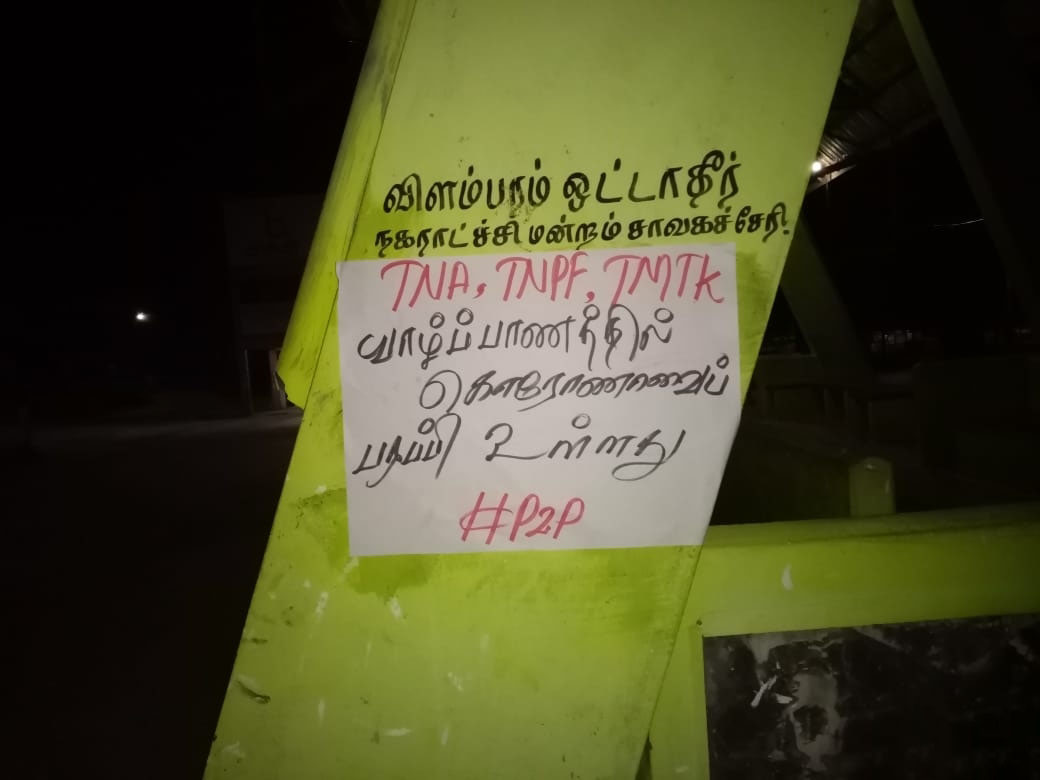 விளம்பரம் ஒட்டாதீர்
நகராட்ச்சி மன்றம் சாவகச்சேரி.
TNA, TNPF, TMTK
யாழ்ப்பாணத்தில்
கொரோணாவைப்
பரப்பி உள்ளது
#P2P